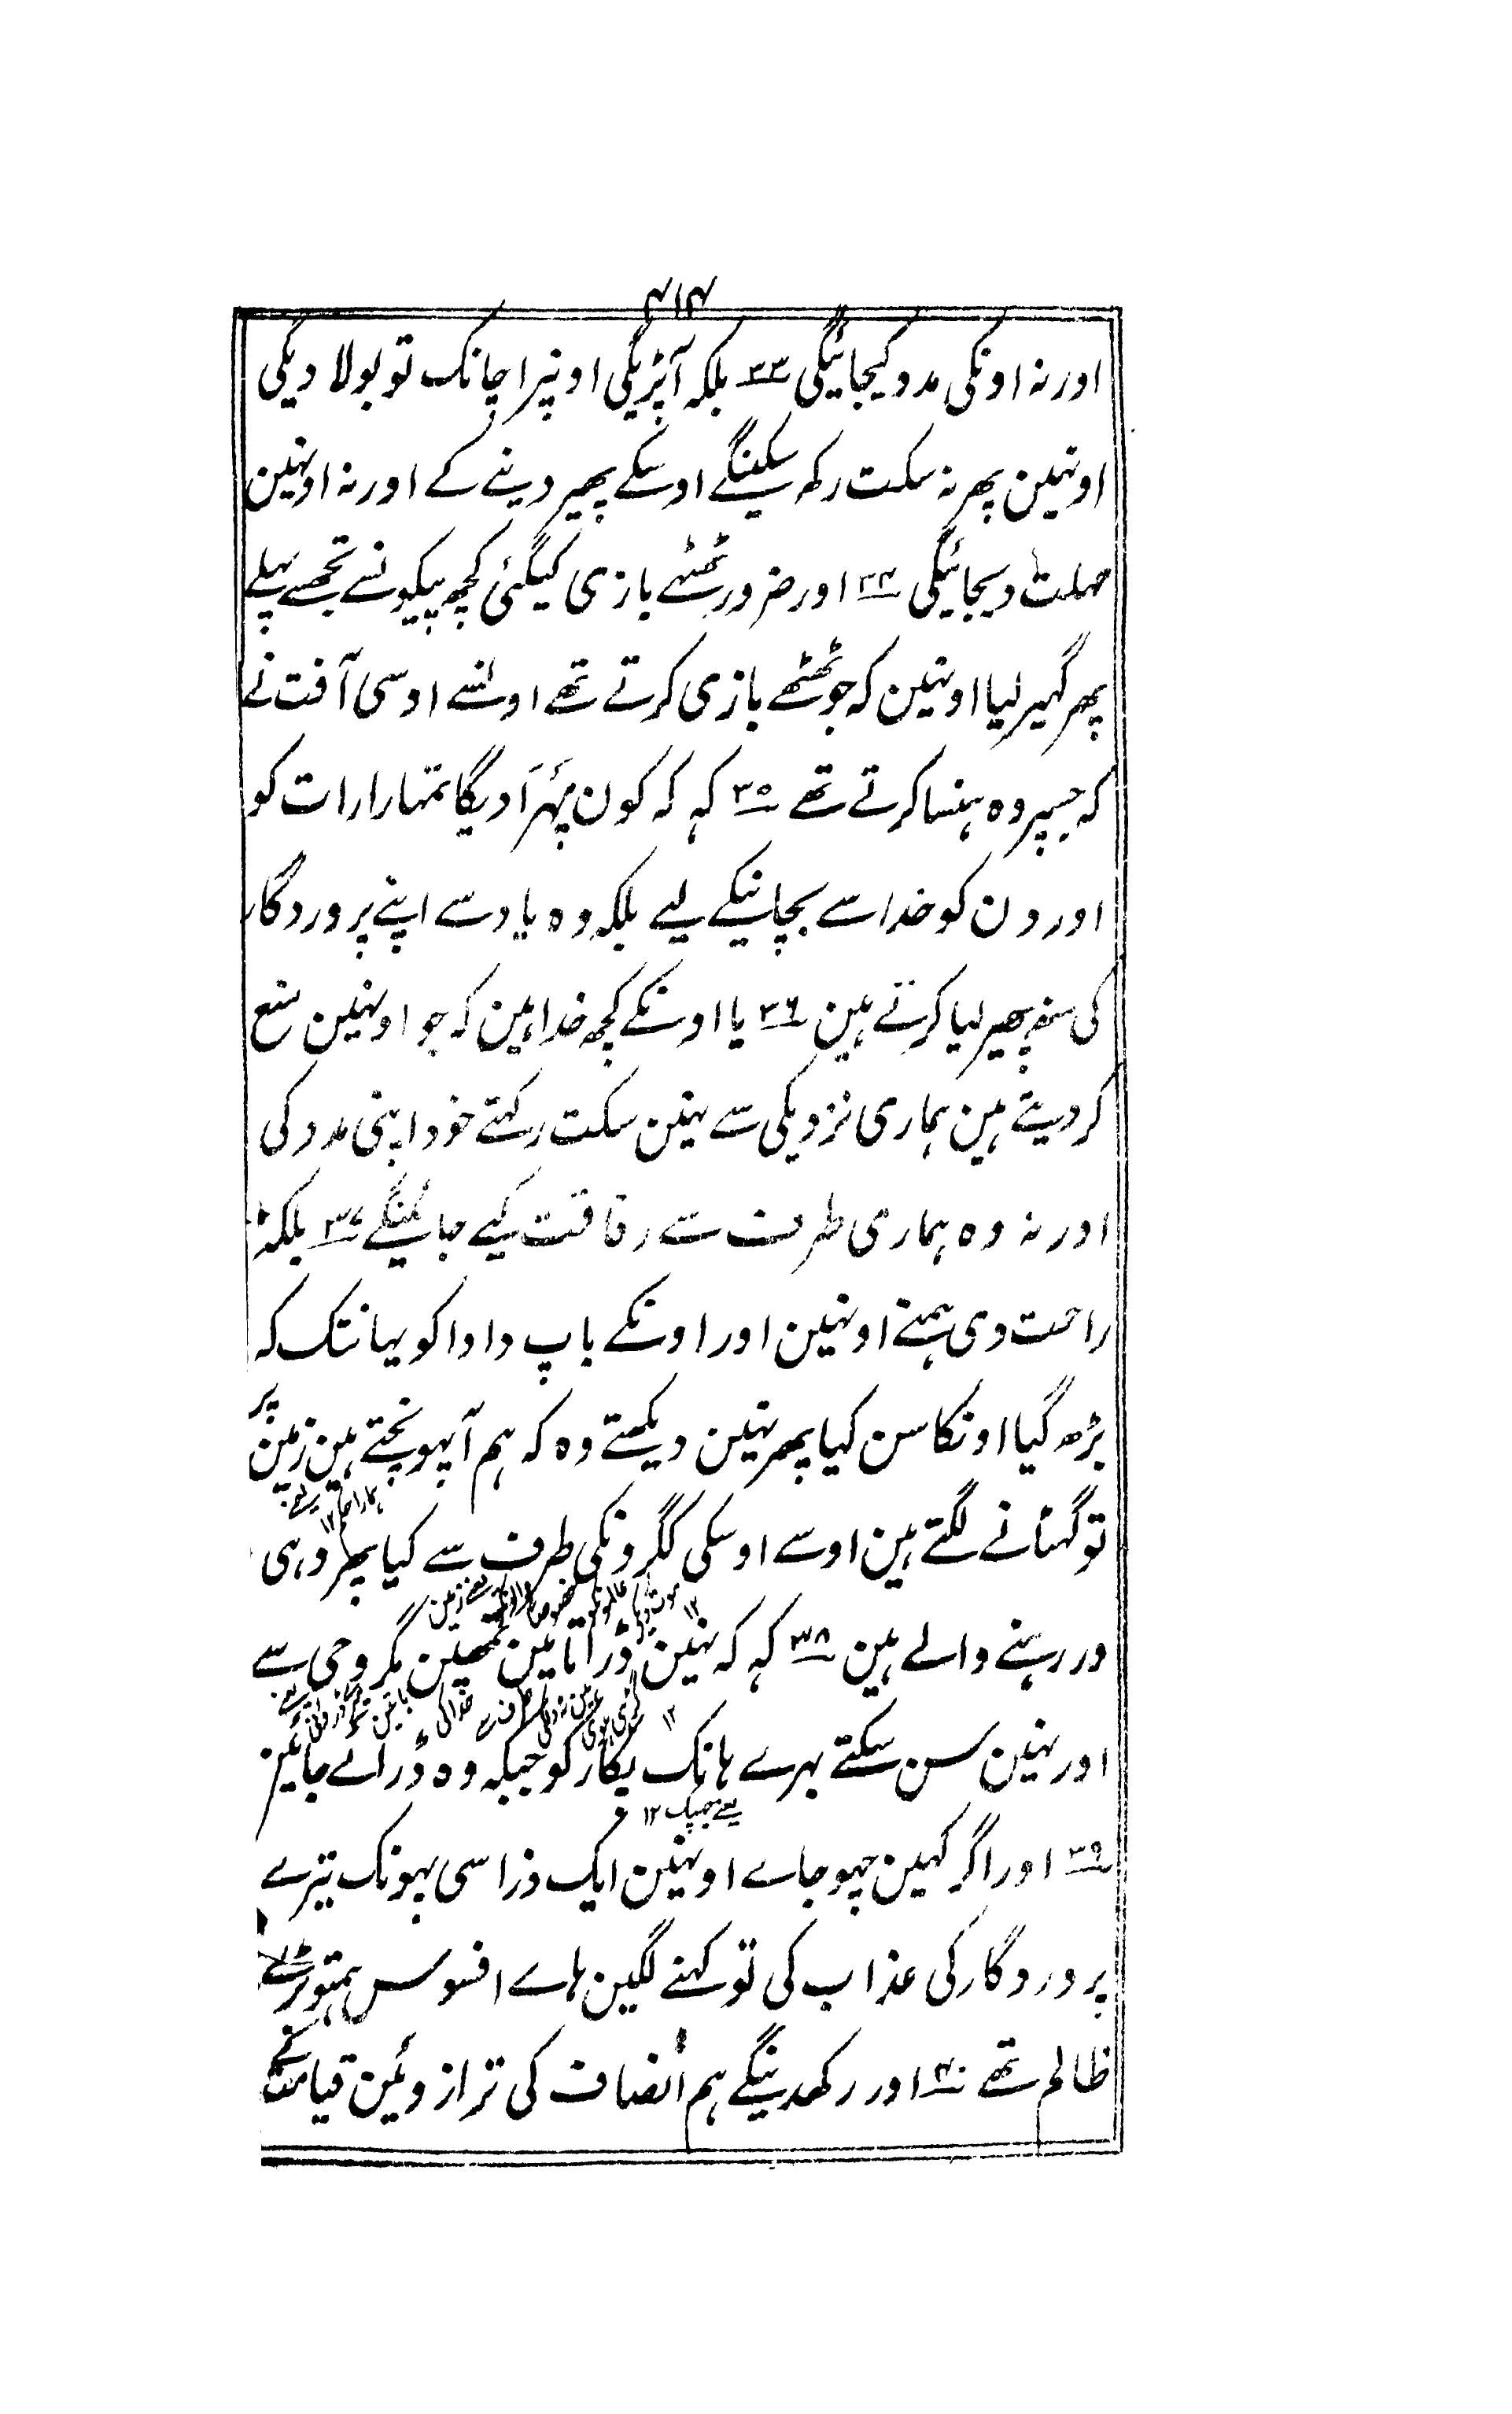 ۴۱۴
اور نہ اونکی مدد کیجائیگی ۳۳ بلکہ آپڑیگی اونپر اچانک تو بولا دیگی
اونہین پھر نہ سکت رکھ سکینگے اوسکے پھیر دینے کے اور نہ اونہین
مہلت دیجائیگی ۳۴ اور ضرور ٹھٹھے بازی کیگئی کچھ پیکونسے تجھسے پہلے
پھر گہیر لیا اونہین کہ جو ٹھٹھے بازی کرتے تھے اونسے اوسی آفت نے
کہ جسپر وہ ہنسا کرتے تھے ۳۵ کہہ کہ کون پہرا دیگا تمہارا رات کو
اور دن کو خدا سے بچانیکے لیے بلکہ وہ یاد سے اپنے پروردگار
کی منہ پھیر لیا کرتے ہین ۳۶ یا اونکے کچھ خدا ہین کہ جو اونہین منع
کر دیتے ہین ہماری نزدیکی سے نہین سکت رکہتے خود اپنی مدد کی
اور نہ وہ ہماری طرف سے رفاقت کیے جائینگے ۳۷ بلکہ
راحت دی ہمنے اونہین اور اونکے باپ دادا کو یہانتک کہ
بڑھ گیا اونکا سن کیا پھر نہین دیکہتے وہ کہ ہم آپہونچتے ہین زمین پر
تو گہٹانے لگتے ہین اوسے اوسکی ککرونکی طرف سے کیا پھر وہی
ور رہنے والے ہین ۳۸ کہہ کہ نہین ڈراتا مین تمھین مگر وحی سے
اور نہین سن سکتے بہرے ہانک پکار کو جبکہ وہ ڈرائے جائین
یعنے بھپک ۱۲
۳۹ اور اگر کہین چھو جاے اونہین ایک ذرا سی پہونک تیرے
پروردگار کی عذاب کی تو کہنے لگین ہاے افسوس ہمتو بڑے
ظالم تھے ۴۰ اور رکھدینگے ہم انصاف کی ترازوئین قیامت کے